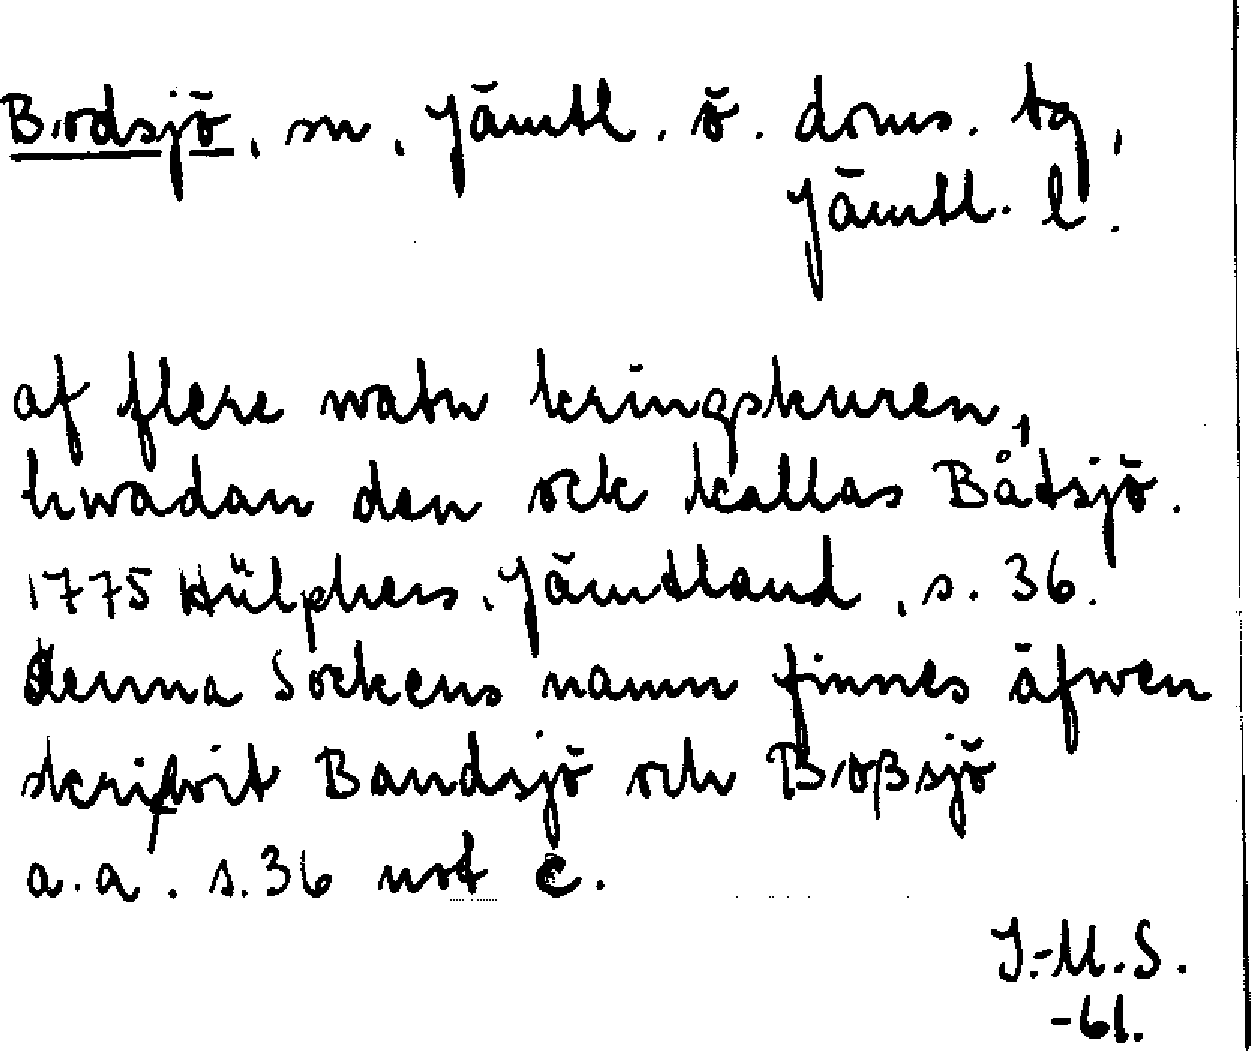 Bodsjö, sn, Jämtl. ö. doms. tg,
Jämtl. l.
af flere watn kringskuren,
hwadan den ock kallas Båtsjö.
1775 Hülphers, Jämtland, s. 36.
Denna Sockens namn finnes äfwen
skrifwit Bandsjö och Boßsjö
a.a. s. 36 not c.
I.-M.S.
-61.